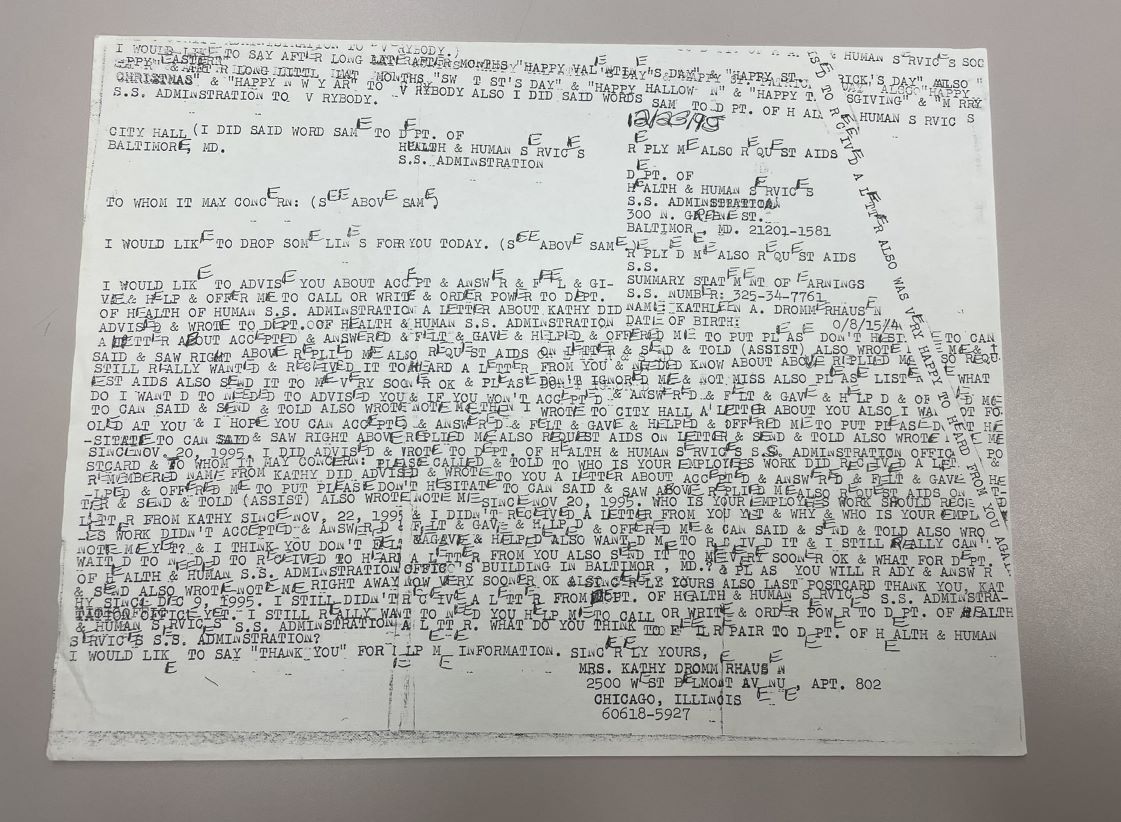 I WOULD LIKE TO SAY AFTER LONG LATE AFTER MONTHS "HAPPY VAL
& HUMAN SERVICES SOC
CHRISTMAS" & "HAPPY NEW YEAR" TO EVERYBODY ALSO I DID SAID WORDS SAME TO DEPT. OF HEALTH & HUMAN SERVICES
S.S. ADMINSTRATION TO EVERYBODY.
12/23/95
CITY HALL (I DID SAID WORD SAME TO DEPT. OF
BALTIMORE, MD. HEALTH & HUMAN SERVICES
S.S. ADMINSTRATION
REPLY ME ALSO REQUEST AIDS
DEPT. OF
HEALTH & HUMAN SERVICES
S.S. ADMINSTRATION
300 N. GREENE ST.
BALTIMORE, MD. 21201-1581
TO WHOM IT MAY CONCERN: (SEE ABOVE SAME)
I WOULD LIKE TO DROP SOME LINES FOR YOU TODAY. (SEE ABOVE SAME)
REPLYED ME ALSO REQUEST AIDS
S.S.
SUMMARY STATEMENT OF EARNINGS
S.S. NUMBER: 325-34-7761
NAME KATHLEEN A. DROMMERHAUSEN
DATE OF BIRTH: 0/8/15/4
I WOULD LIKE TO ADVISE YOU ABOUT ACCEPT & ANSWER & FEEL & GI-
VE & HELP & OFFER ME TO CALL OR WRITE & ORDER POWER TO DEPT.
OF HEALTH OF HUMAN S.S. ADMINSTRATION A LETTER ABOUT KATHY DID
ADVISED & WROTE TO DEPT. OF HEALTH & HUMAN S.S. ADMINSTRATION
A LETTER ABOUT ACCEPTED & ANSWERED & FELT & GAVE & HELPED & OFFERED ME TO PUT PLEASE DON'T HESI TE TO CAN
SAID & SAW RIGHT ABOVE REPLIED ME ALSO REQUEST AIDS ON LETTER & SEND & TOLD (ASSIST) ALSO WROTE ME &
STILL REALLY WANTED & RECEIVED IT TO HEARD A LETTER FROM YOU & NEEDED KNOW ABOUT ABOVE REPLIED ME SO REQU
EST AIDS ALSO SEND IT TO ME VERY SOONER OK & PLEASE DON'T IGNORED ME & NOT MISS ALSO PLEASE LISTE WHAT
DO I WANTED TO NEEDED TO ADVISED YOU & IF YOU WON'T ACCEPTED & ANSWERED & FELT & GAVE & HELPED & OF ED ME
TO CAN SAID & SEND & TOLD ALSO WROTE NOTE ME THEN I WROTE TO CITY HALL A LETTER ABOUT YOU ALSO I WA OT FO-
OLED AT YOU & I HOPE YOU CAN ACCEPTED & ANSWERED & FELT & GAVE & HELPED & OFFERED ME TO PUT PLEASE D NT HE
-SITATE TO CAN SAID & SAW RIGHT ABOVE REPLIED ME ALSO REQUEST AIDS ON LETTER & SEND & TOLD ALSO WROTE ME
SINCE NOV. 20, 1995. I DID ADVISED & WROTE TO DEPT. OF HEALTH & HUMAN SERVICES S.S. ADMINSTRATION OFFIC PO
STCARD & TO WHOM IT MAY CONCERN: PLEASE CALLED & TOLD TO WHO IS YOUR EMPLOYEES WORK DID RECEIVED A LET &
REMEMBERED NAME FROM KATHY DID ADVISED & WROTE TO YOU A LETTER ABOUT ACCEPTED & ANSWERED & FELT & GAVE & HE
-LPED & OFFERED ME TO PUT PLEASE DON'T HESITATE TO CAN SAID & SAW ABOVE REPLIED ME ALSO REQUEST AIDS ON
TER & SEND & TOLD (ASSIST) ALSO WROTE NOTE ME SINCE NOV 20, 1995. WHO IS YOUR EMPLOYEES WORK SHOULD RECIE
LETTER FROM KATHY SINCE NOV, 22, 1995 & I DIDN'T RECEIVED A LETTER FROM YOU YET & WHY & WHO IS YOUR EMPL
ES WORK DIDN'T ACCEPTED & ANSWERED & FELT & GAVE & HELPED & OFFERED ME & CAN SAID & SEND & TOLD ALSO WRO
NOTE ME YET? & I THINK YOU DON'T FEEL & GAVE & HELPED ALSO WANTED ME TO RECEIVED IT & I STILL REALLY CAN'T
WAITED TO NEEDED TO RECEIVED TO HEARD A LETTER FROM YOU ALSO SEND IT TO ME VERY SOONER OK & WHAT FOR DEPT.
OF HEALTH & HUMAN S.S. ADMINSTRATION OFFICE'S BUILDING IN BALTIMORE, MD.? & PLEASE YOU WILL READY & ANSWER
& SEND ALSO WROTE NOTE ME RIGHT AWAY NOW VERY SOONER OK ALSINCERELY YOURS ALSO LAST POSTCARD THANK YOU KAT
HY SINCE DEC 9, 1995. I STILL DIDN'T RECEIVE A LETTER FROM DEPT. OF HEALTH & HUMAN SERVICES S.S. ADMINSTRA-
TATION OFFICE YET. I STILL REALLY WANT TO NEED YOU HELP ME TO CALL OR WRITE & ORDER POWER TO DEPT. OF HEALTH
& HUMAN SERVICES S.S. ADMINSTRATION A LETTER. WHAT DO YOU THINK TO FEEL REPAIR TO DEPT. OF HEALTH & HUMAN
SERVICES S.S. ADMINSTRATION?
I WOULD LIKE TO SAY "THANK YOU" FOR HELP ME INFORMATION. SINCERELY YOURS,
MRS. KATHY DROMMERHAUSEN
2500 WEST BELMONT AVENUE, APT. 802
CHICAGO, ILLINOIS
60618-5927
ED TO RECEIVED A LETTER ALSO WAS VERY HAPPY TO HEARD FROM YOU AGAIN